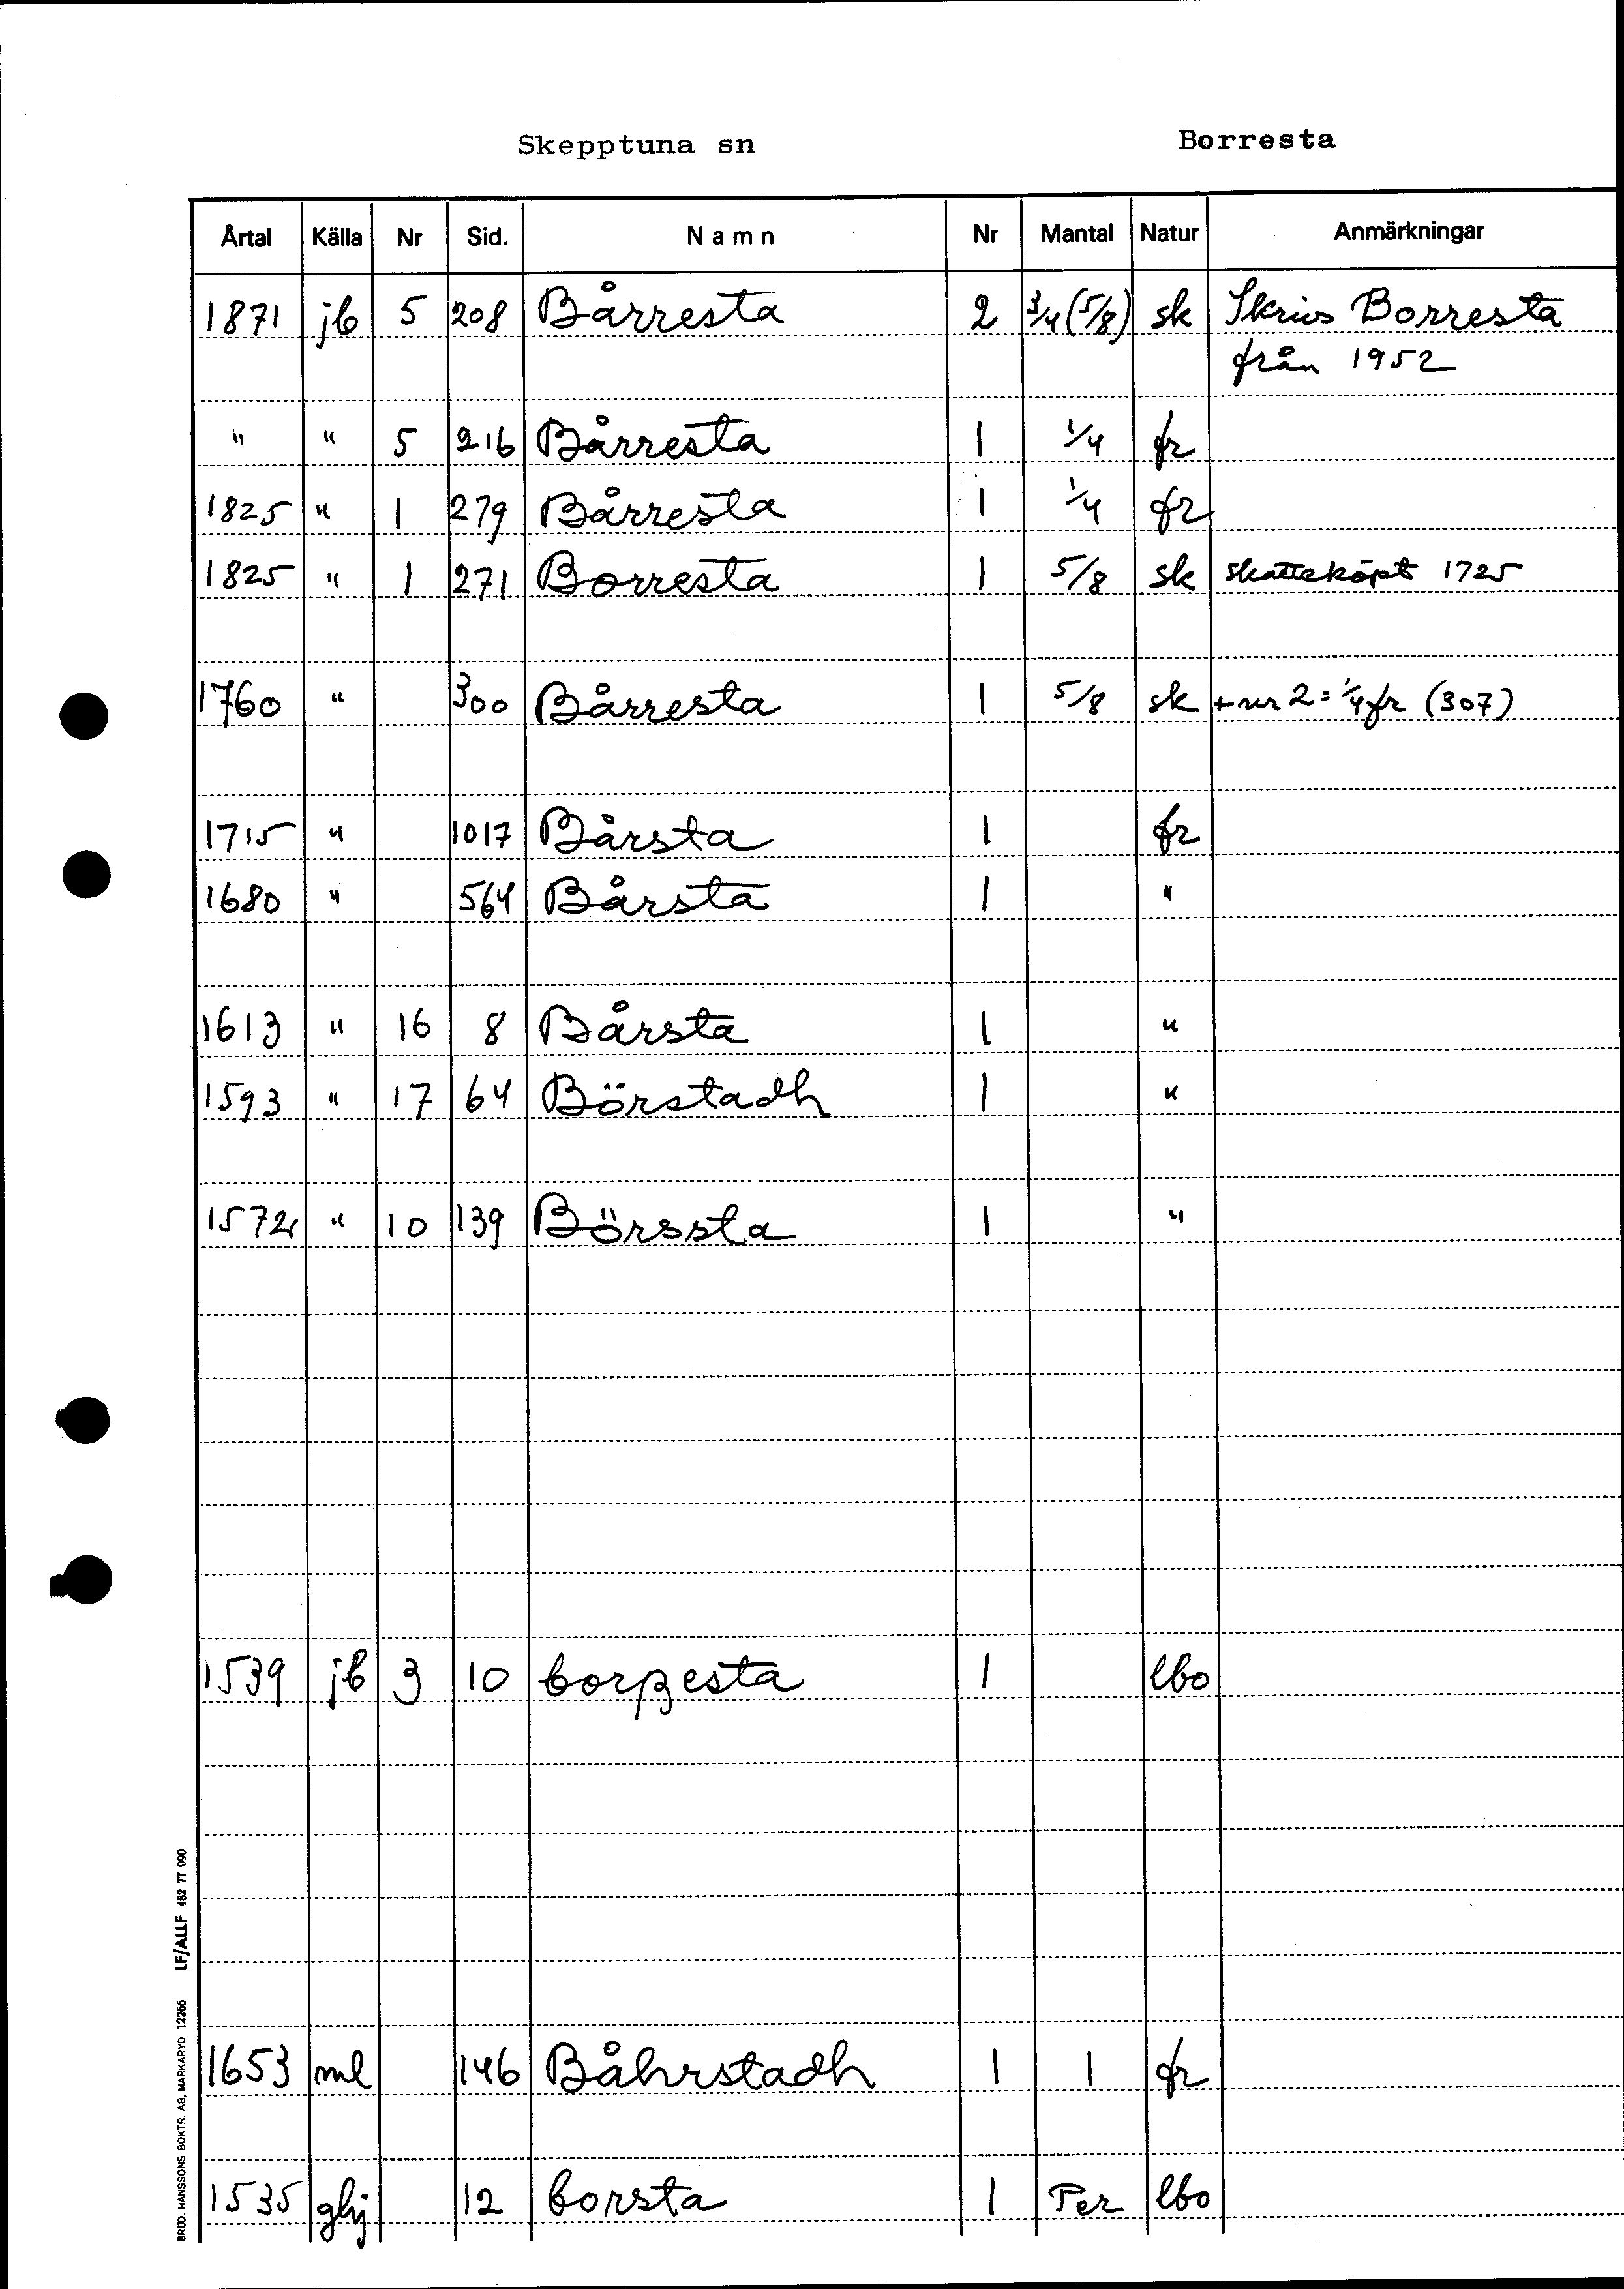 Skepptuna sn Borresta
Årtal Källa Nr Sid. Namn Nr Mantal Natur Anmärkningar
1871 jb 5 208 Bårresta 2 3/4 (5/8) sk Skrivs Borresta
från 1952
" " 5 216 Bårresta 1 1/4 fr
1825 " 1 279 Bårresta 1 1/4 fr
1825 " 1 271 Borresta 1 5/8 sk skatteköpt 1725
1760 " 300 Bårresta 1 5/8 sk + nr 2 = 1/4 fr (307)
1715 " 1017 Bårsta 1 fr
1680 " 564 Bårsta 1 "
1613 " 16 8 Bårsta 1 "
1593 " 17 64 Börstadh 1 "
1572 " 10 139 Börssta 1 "
1539 jb 3 10 borßesta 1 lbo
1653 ml 146 Båhrstadh 1 1 fr
1535 ghj 12 borsta 1 Per lbo
BRÖD. HANSSONS BOKTR. AB, MARKARYD 12266 LF/ALLF 482 77 090